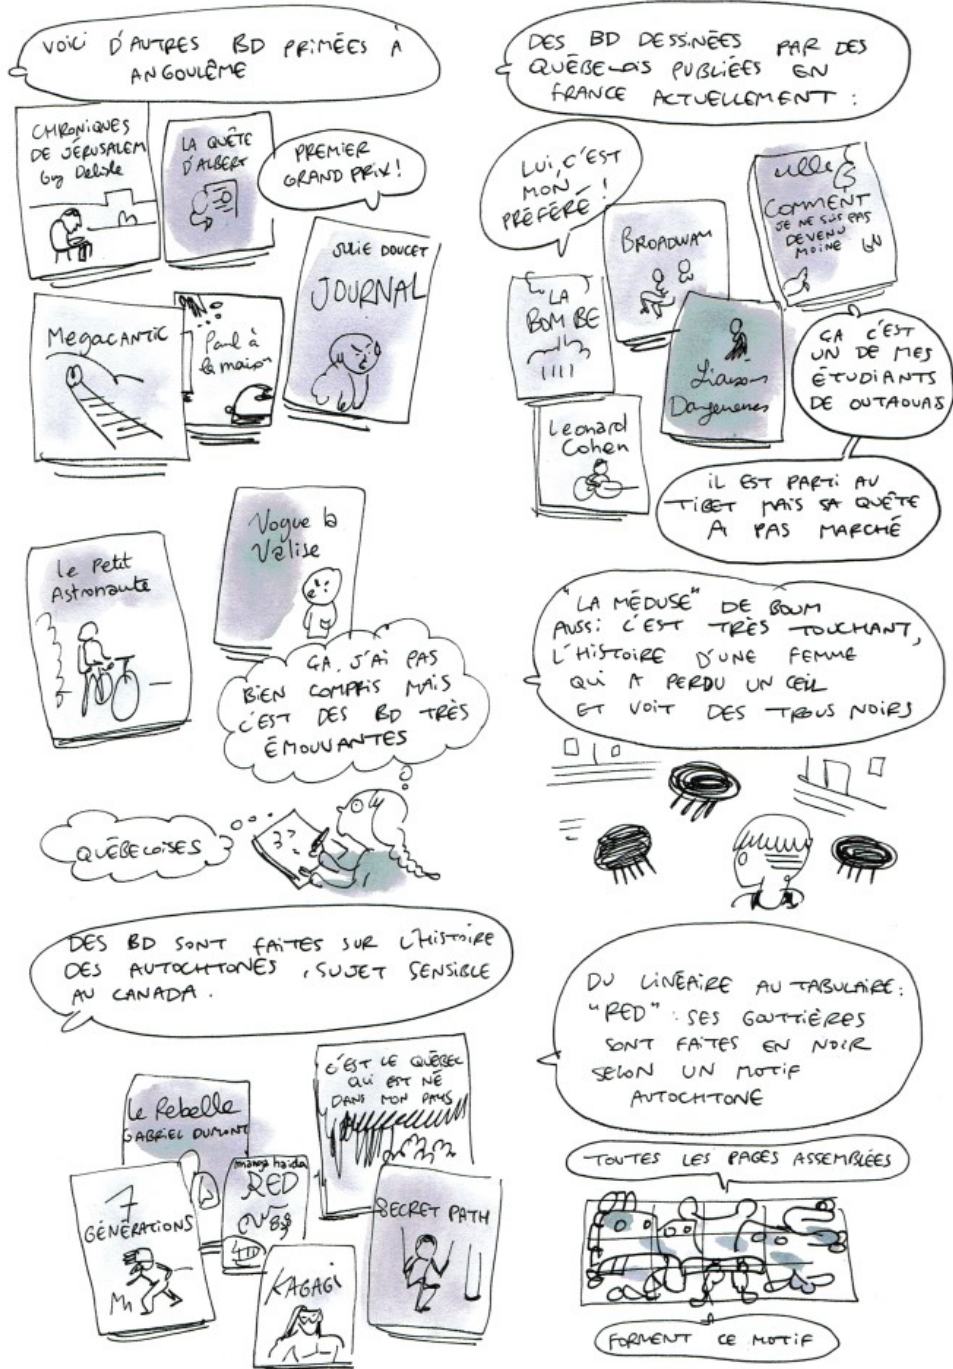 VOICI D'AUTRES BD PRIMÉES À
ANGOULÊME
CHRONIQUES
DE JÉRUSALEM
Guy Delisle
LA QUÊTE
D'ALBERT
PREMIER
GRAND PRIX!
JULIE DOUCET
JOURNAL
MEGACANTIC
Paul à
la maison
Le Petit
Astronaute
Vogue la
Valise
ÇA, J'AI PAS
BIEN COMPRIS MAIS
C'EST DES BD TRÈS
ÉMOUVANTES
QUÉBÉCOISES
DES BD SONT FAITES SUR L'HISTOIRE
DES AUTOCHTONES, SUJET SENSIBLE
AU CANADA.
Le Rebelle
GABRIEL DUMONT
C'EST LE QUÉBEC
QUI EST NÉ
DANS MON PAYS
manga haida
RED
7
GÉNÉRATIONS
SECRET PATH
KAGAGI
DES BD DESSINÉES PAR DES
QUÉBECOIS PUBLIÉES EN
FRANCE ACTUELLEMENT :
LUI, C'EST
MON
PRÉFÉRÉ !
BROADWAY
COMMENT
JE NE SUIS PAS
DEVENU
MOINE
LA
BOMBE
Liaisons
Dangereuses
Leonard
Cohen
ÇA C'EST
UN DE MES
ÉTUDIANTS
DE OUTAOUAIS
IL EST PARTI AU
TIBET MAIS SA QUÊTE
A PAS MARCHÉ
"LA MÉDUSE" DE BOUM
AUSSI C'EST TRÈS TOUCHANT,
L'HISTOIRE D'UNE FEMME
QUI A PERDU UN ŒIL
ET VOIT DES TROUS NOIRS
DU LINÉAIRE AU TABULAIRE :
"RED" : SES GOUTTIÈRES
SONT FAITES EN NOIR
SELON UN MOTIF
AUTOCHTONE
TOUTES LES PAGES ASSEMBLÉES
FORMENT CE MOTIF